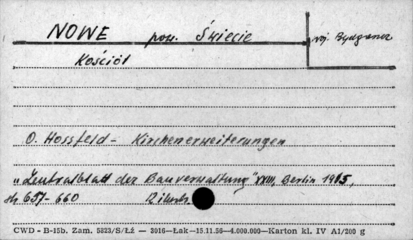 NOWE pow. Świecie woj. Bydgoszcz
Kościół
O. Hossfeld - Kirchenerweiterungen
„Zentralblatt der Bauverwaltung" XXXIII, Berlin 1915,
str 657-660 2 ilustr.
CWD - B-15b. Zam. 5823/S/Łż — 3016—Łak—15.11.56—4.000.000—Karton kl. IV A1/200 g